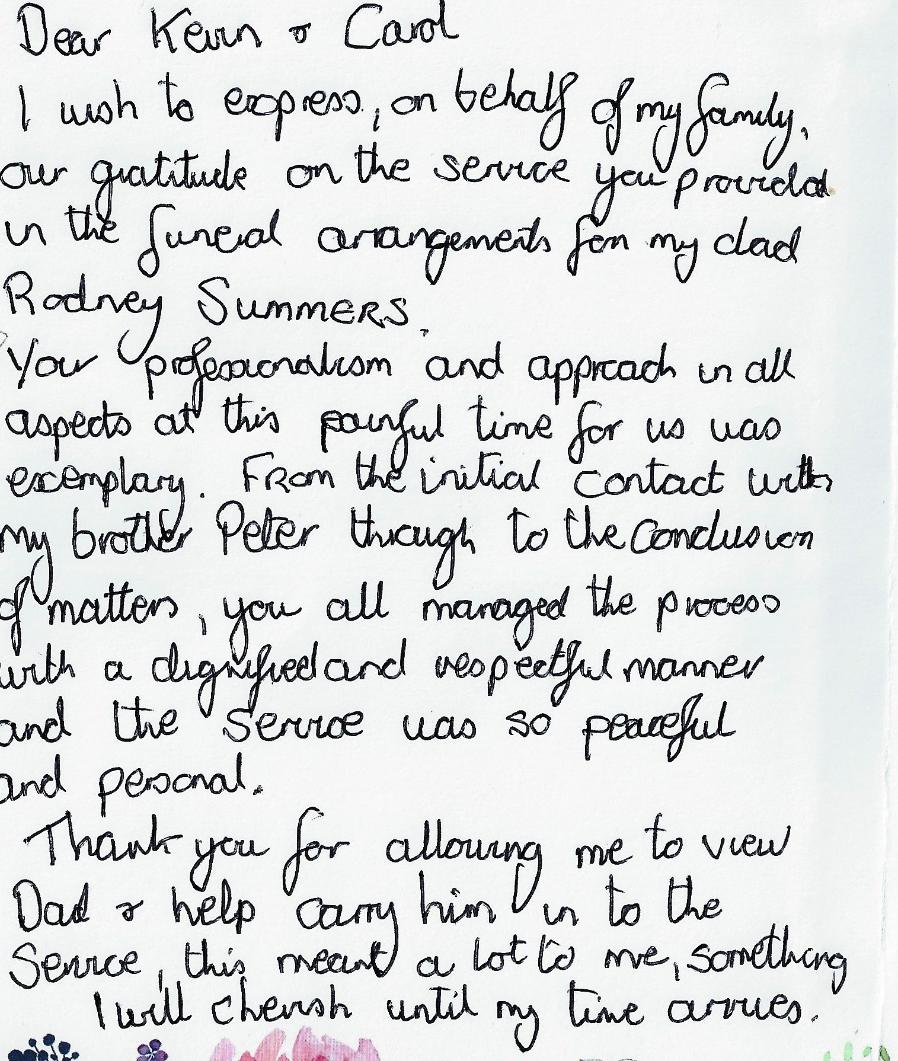 Dear Kevin & Carol
I wish to express, on behalf of my family,
our gratitude on the service you provided
in the funeral arrangements for my dad
Rodney Summers.
Your professionalism and approach in all
aspects at this painful time for us was
exemplary. From the initial contact with
my brother Peter through to the conclusion
of matters, you all managed the process
with a dignified and respectful manner
and the service was so peaceful
and personal.
Thank you for allowing me to view
Dad & help carry him in to the
Service, this meant a lot to me, something
I will cherish until my time arrives.